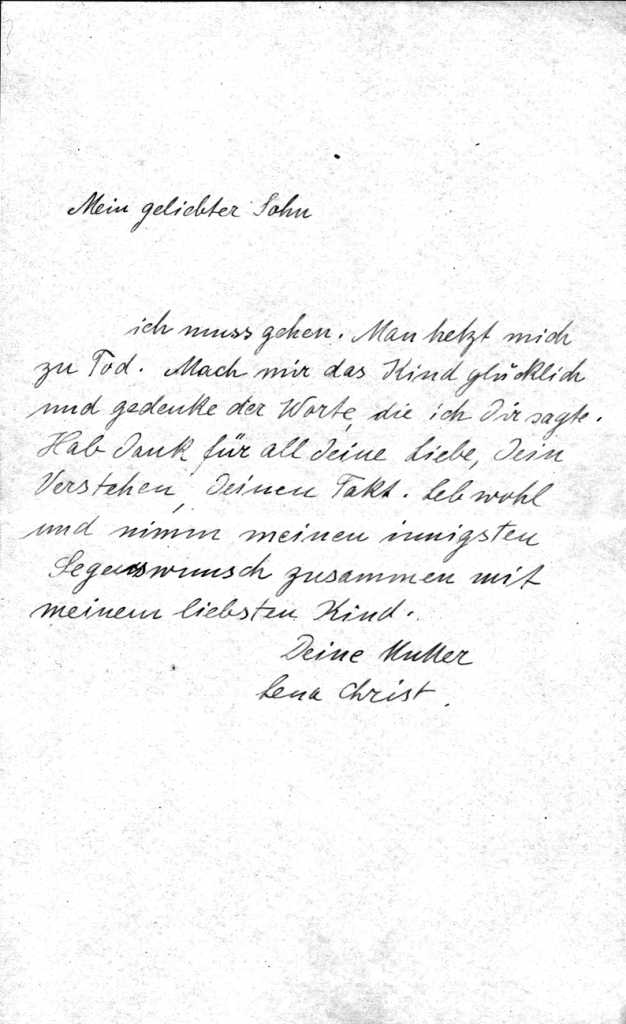 Mein geliebter Sohn
ich muss gehen. Man hetzt mich
zu Tod. Mach mir das Kind glücklich
und gedenke der Worte, die ich Dir sagte.
Hab Dank für all Deine Liebe, Dein
Verstehen, Deinen Takt. Leb wohl
und nimm meinen innigsten
Segenswunsch zusammen mit
meinem liebsten Kind.
Deine Mutter
Lena Christ.